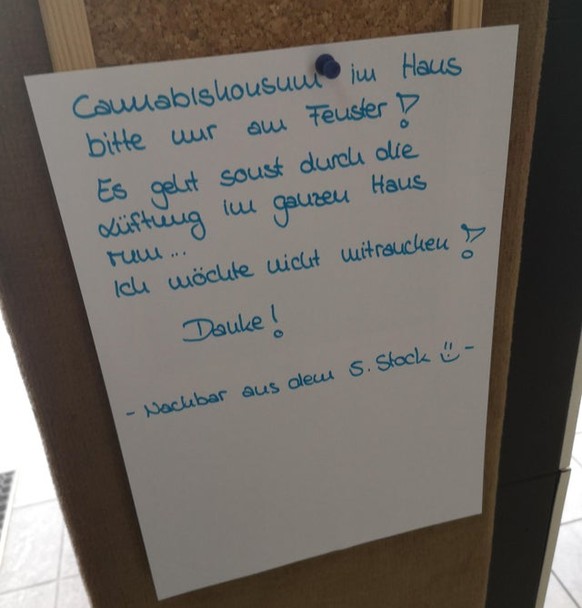 Cannabiskonsum im Haus
bitte nur am Fenster!
Es geht sonst durch die
Lüftung im ganzen Haus
rum...
Ich möchte nicht mitrauchen!
Danke!
- Nachbar aus dem 5. Stock ü -